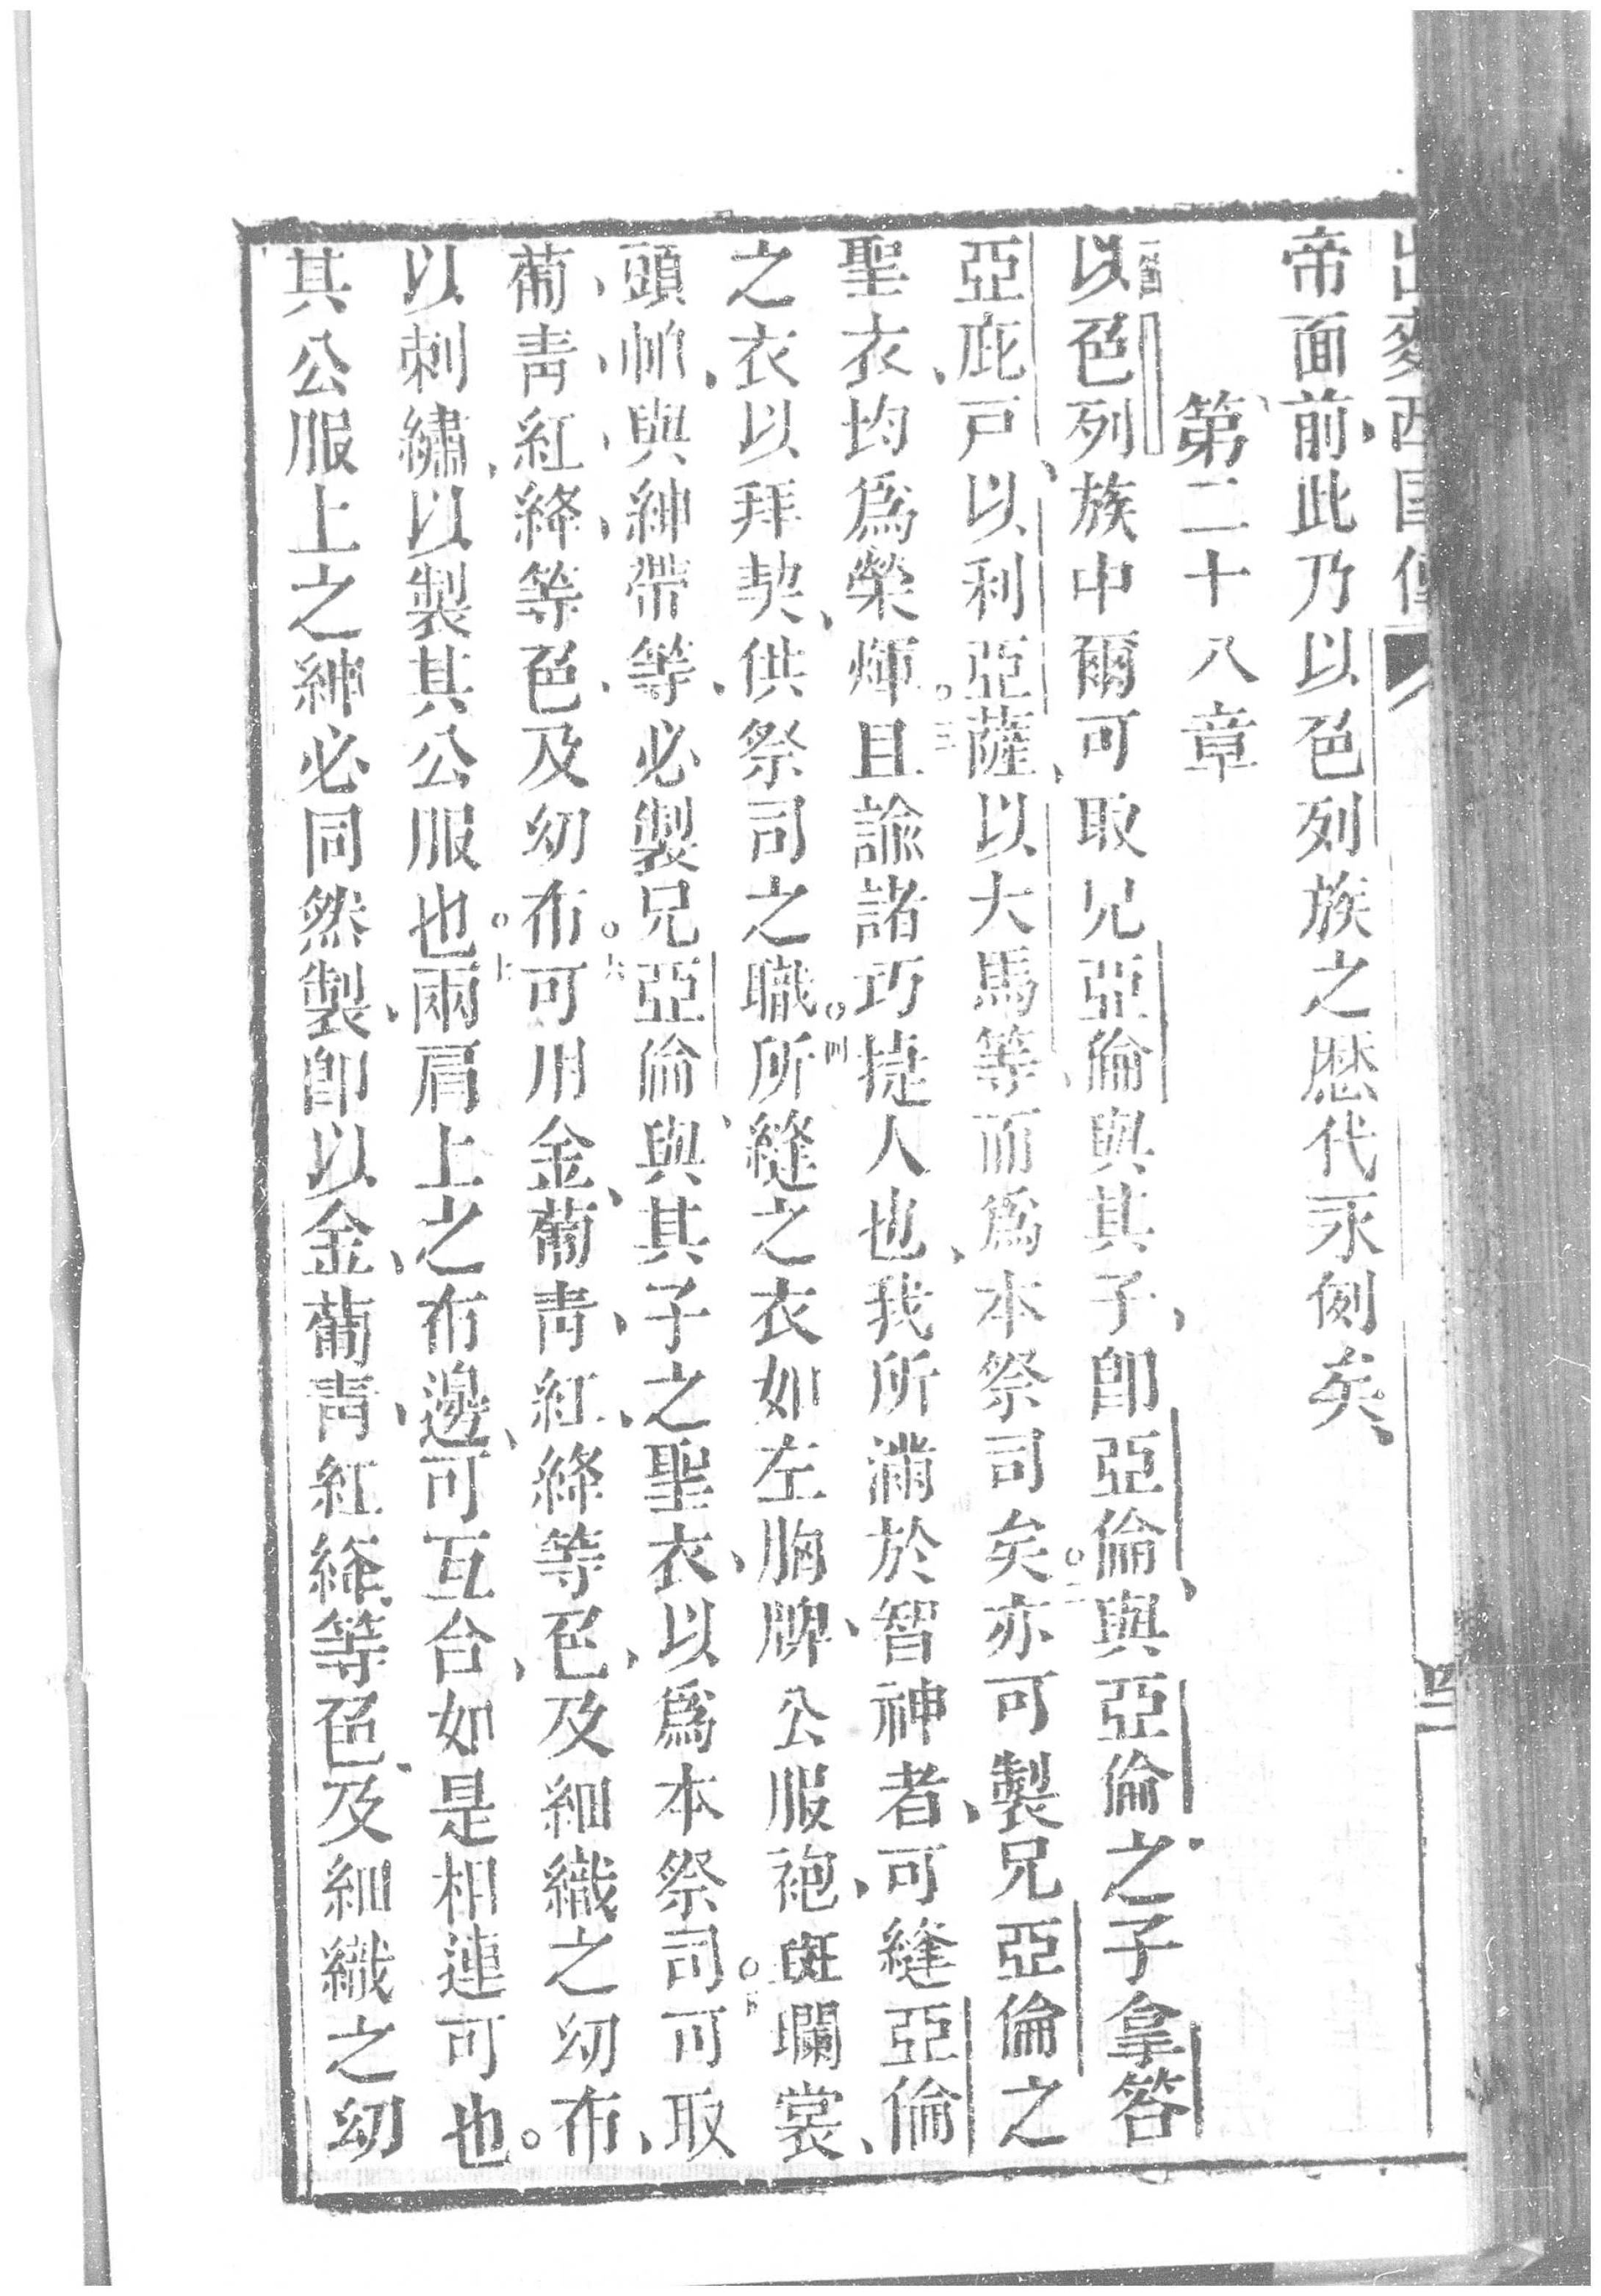 帝面前、此乃以色列族之歷代永例矣、
第二十八章
以色列族中爾可取兄亞倫與其子、卽亞倫、與亞倫之子拿答
亞庇戶、以利亞薩、以大馬等、而為本祭司矣。二亦可製兄亞倫之
聖衣、均為榮煇。三且諭諸巧捷人也、我所滿於智神者、可縫亞倫
之衣以拜契、供祭司之職。四所縫之衣如左胸牌、公服袍、斑斕裳、
頭帕、與紳帶等、必製兄亞倫、與其子之聖衣、以為本祭司。五可取
葡、青、紅、絳、等色、及幼布。六可用金、葡青、紅、絳等色、及細織之幼布、
以刺繡、以製其公服也。七兩肩上之布邊、可互合、如是相連可也。
其公服上之紳必同然製、卽以金、葡青、紅絳、等色、及細織之幼